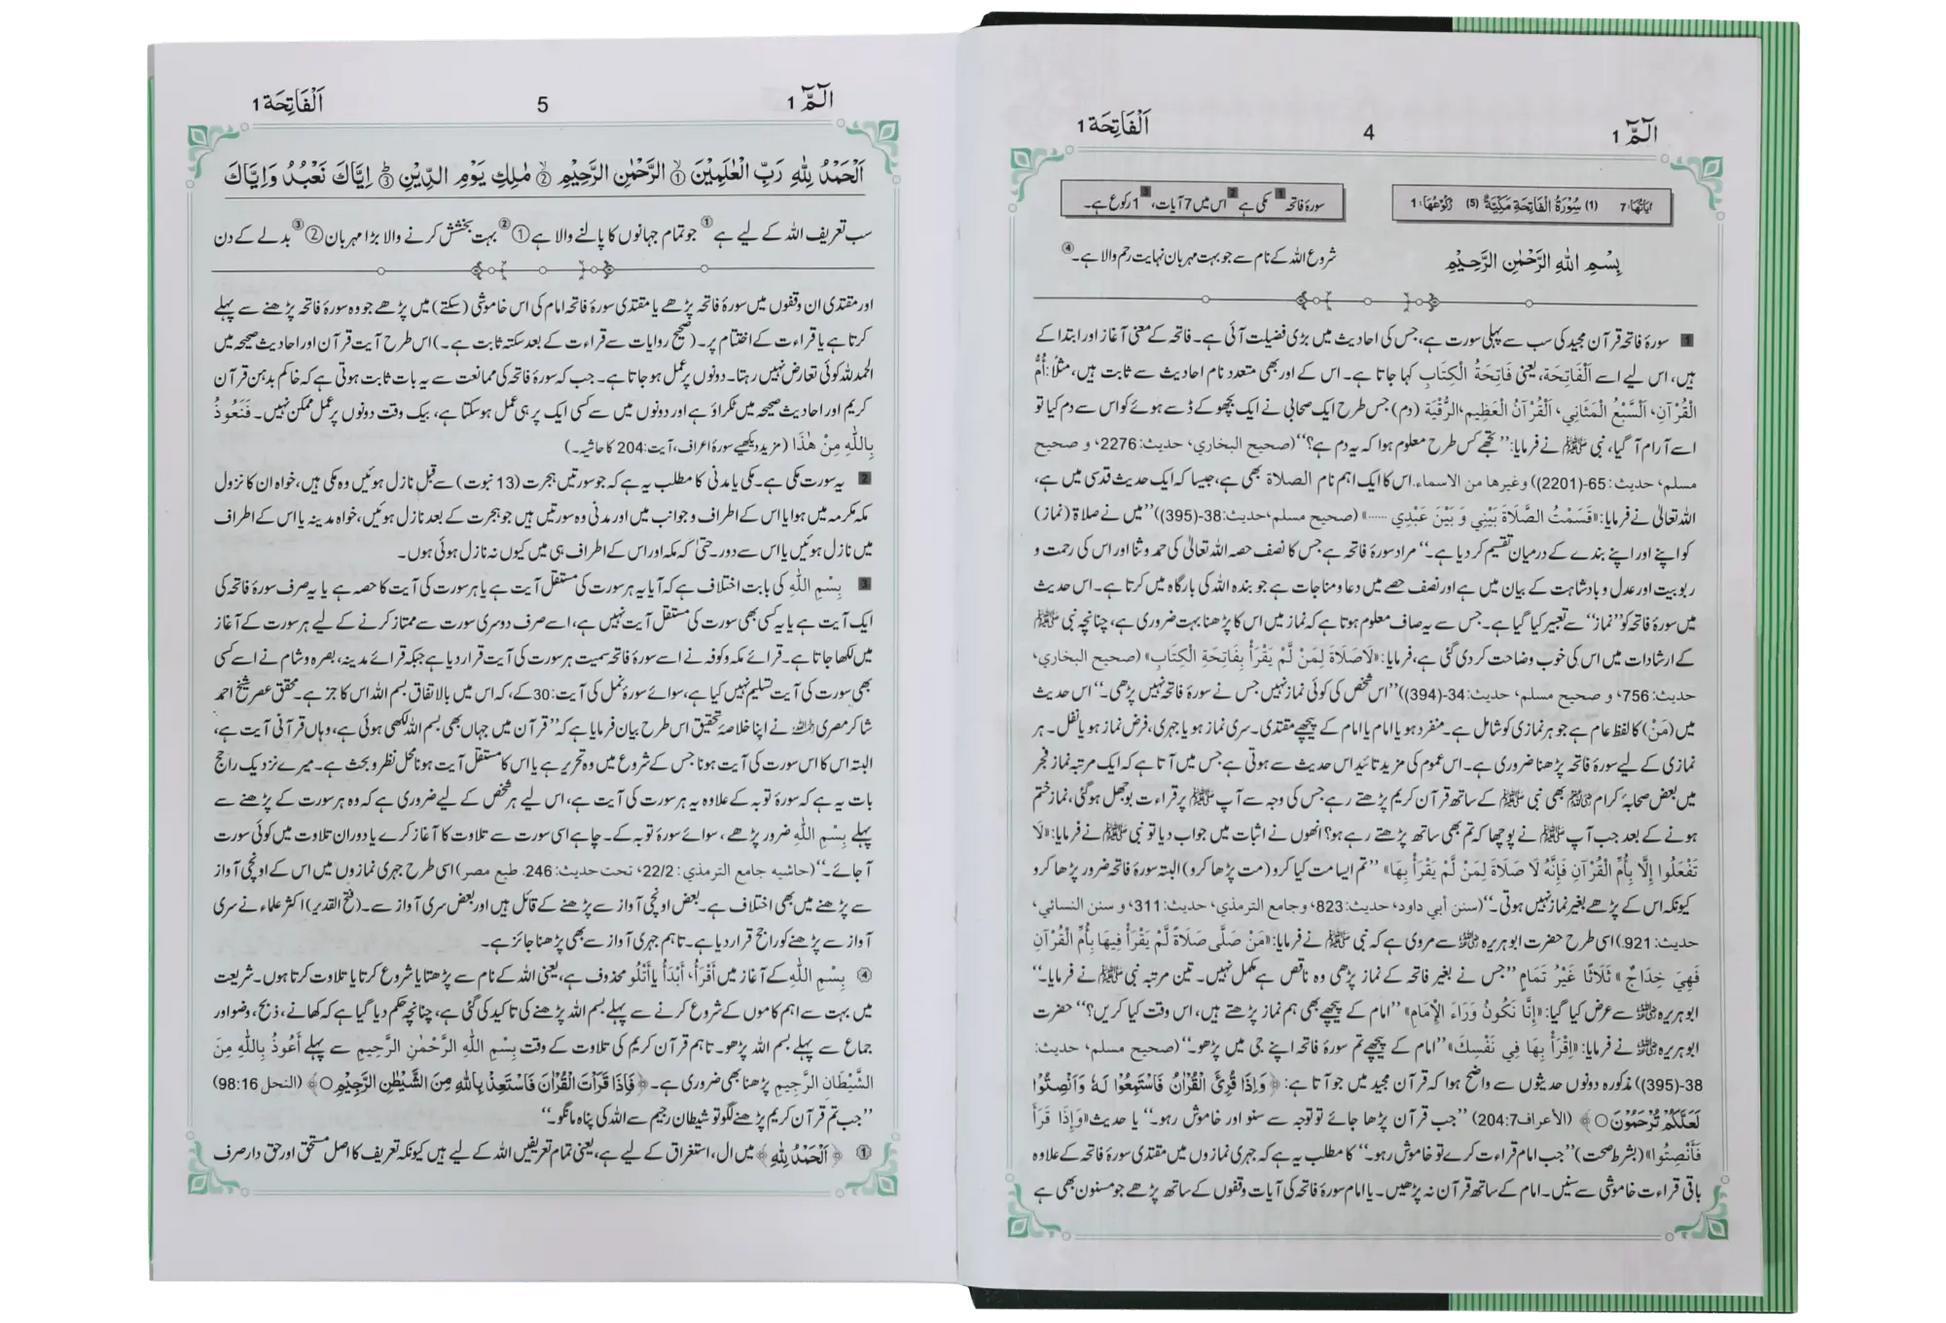 الٓمّٓ 1
4
اَلْفَاتِحَة 1
اٰيَاتُهَا: 7 (1) سُوْرَةُ الْفَاتِحَةِ مَكِّيَّةٌ (5) رُكُوْعُهَا: 1
سورۂ فاتحہ 1 مکی ہے 2 اس میں 7 آیات، 3 1 رکوع ہے۔
بِسْمِ اللّٰهِ الرَّحْمٰنِ الرَّحِيْمِ
شروع اللہ کے نام سے جو بہت مہربان نہایت رحم والا ہے۔ ④
1 سورۂ فاتحہ قرآن مجید کی سب سے پہلی سورت ہے، جس کی احادیث میں بڑی فضیلت آئی ہے۔ فاتحہ کے معنی آغاز اور ابتدا کے
ہیں، اس لیے اسے اَلْفَاتِحَة، یعنی فَاتِحَةُ الْكِتَابِ کہا جاتا ہے۔ اس کے اور بھی متعدد نام احادیث سے ثابت ہیں، مثلًا: أُمُّ
الْقُرْآنِ، اَلسَّبْعُ الْمَثَانِي، اَلْقُرْآنُ الْعَظِيم، الرُّقْيَة (دم) جس طرح ایک صحابی نے ایک بچھو کے ڈسے ہوئے کو اس سے دم کیا تو
اسے آرام آ گیا، نبی ﷺ نے فرمایا: ”تجھے کس طرح معلوم ہوا کہ یہ دم ہے؟“ (صحيح البخاري، حديث: 2276، و صحيح
مسلم، حديث: 65-(2201)) وغيرها من الاسماء. اس کا ایک اہم نام الصلاة بھی ہے، جیسا کہ ایک حدیث قدسی میں ہے،
اللہ تعالیٰ نے فرمایا: «قَسَمْتُ الصَّلَاةَ بَيْنِي وَ بَيْنَ عَبْدِي ......» (صحيح مسلم، حديث: 38-(395)) ”میں نے صلاۃ (نماز)
کو اپنے اور اپنے بندے کے درمیان تقسیم کر دیا ہے۔“ مراد سورۂ فاتحہ ہے جس کا نصف حصہ اللہ تعالیٰ کی حمد و ثنا اور اس کی رحمت و
ربوبیت اور عدل و بادشاہت کے بیان میں ہے اور نصف حصے میں دعا و مناجات ہے جو بندہ اللہ کی بارگاہ میں کرتا ہے۔ اس حدیث
میں سورۂ فاتحہ کو ”نماز“ سے تعبیر کیا گیا ہے۔ جس سے یہ صاف معلوم ہوتا ہے کہ نماز میں اس کا پڑھنا بہت ضروری ہے، چنانچہ نبی ﷺ
کے ارشادات میں اس کی خوب وضاحت کر دی گئی ہے، فرمایا: «لَاصَلَاةَ لِمَنْ لَّمْ يَقْرَأْ بِفَاتِحَةِ الْكِتَابِ» (صحيح البخاري،
حديث: 756، و صحيح مسلم، حديث: 34-(394)) ”اس شخص کی کوئی نماز نہیں جس نے سورۂ فاتحہ نہیں پڑھی۔“ اس حدیث
میں (مَنْ) کا لفظ عام ہے جو ہر نمازی کو شامل ہے۔ منفرد ہو یا امام یا امام کے پیچھے مقتدی۔ سری نماز ہو یا جہری، فرض نماز ہو یا نفل۔ ہر
نمازی کے لیے سورۂ فاتحہ پڑھنا ضروری ہے۔ اس عموم کی مزید تائید اس حدیث سے ہوتی ہے جس میں آتا ہے کہ ایک مرتبہ نماز فجر
میں بعض صحابۂ کرام بھی نبی ﷺ کے ساتھ قرآن کریم پڑھتے رہے جس کی وجہ سے آپ ﷺ پر قراءت بوجھل ہو گئی، نماز ختم
ہونے کے بعد جب آپ ﷺ نے پوچھا کہ تم بھی ساتھ پڑھتے رہے ہو؟ انھوں نے اثبات میں جواب دیا تو نبی ﷺ نے فرمایا: «لَا
تَفْعَلُوا إِلَّا بِأُمِّ الْقُرْآنِ فَإِنَّهُ لَا صَلَاةَ لِمَنْ لَّمْ يَقْرَأْ بِهَا» ”تم ایسا مت کیا کرو (مت پڑھا کرو) البتہ سورۂ فاتحہ ضرور پڑھا کرو
کیونکہ اس کے پڑھے بغیر نماز نہیں ہوتی۔“ (سنن أبي داود، حديث: 823، وجامع الترمذي، حديث: 311، و سنن النسائي،
حديث: 921.) اسی طرح حضرت ابوہریرہ سے مروی ہے کہ نبی ﷺ نے فرمایا: «مَنْ صَلَّى صَلَاةً لَّمْ يَقْرَأْ فِيهَا بِأُمِّ الْقُرْآنِ
فَهِيَ خِدَاجٌ» ثَلَاثًا غَيْرُ تَمَامٍ ”جس نے بغیر فاتحہ کے نماز پڑھی وہ ناقص ہے مکمل نہیں۔ تین مرتبہ نبی ﷺ نے فرمایا۔“
ابوہریرہ سے عرض کیا گیا: «إِنَّا نَكُونُ وَرَاءَ الْإِمَامِ» ”امام کے پیچھے بھی ہم نماز پڑھتے ہیں، اس وقت کیا کریں؟“ حضرت
ابوہریرہ نے فرمایا: «اِقْرَأْ بِهَا فِي نَفْسِكَ» ”امام کے پیچھے تم سورۂ فاتحہ اپنے جی میں پڑھو۔“ (صحيح مسلم، حديث:
38-(395)) مذکورہ دونوں حدیثوں سے واضح ہوا کہ قرآن مجید میں جو آتا ہے: ﴿وَاِذَا قُرِئَ الْقُرْاٰنُ فَاسْتَمِعُوْا لَهٗ وَاَنْصِتُوْا
لَعَلَّكُمْ تُرْحَمُوْنَ○﴾ (الأعراف 204:7) ”جب قرآن پڑھا جائے تو توجہ سے سنو اور خاموش رہو۔“ یا حدیث «وَإِذَا قَرَأَ
فَأَنْصِتُوا» (بشرط صحت) ”جب امام قراءت کرے تو خاموش رہو۔“ کا مطلب یہ ہے کہ جہری نمازوں میں مقتدی سورۂ فاتحہ کے علاوہ
باقی قراءت خاموشی سے سنیں۔ امام کے ساتھ قرآن نہ پڑھیں۔ یا امام سورۂ فاتحہ کی آیات وقفوں کے ساتھ پڑھے جو مسنون بھی ہے
الٓمّٓ 1
5
اَلْفَاتِحَة 1
اَلْحَمْدُ لِلّٰهِ رَبِّ الْعٰلَمِيْنَ ① الرَّحْمٰنِ الرَّحِيْمِ ② مٰلِكِ يَوْمِ الدِّيْنِ ③ اِيَّاكَ نَعْبُدُ وَاِيَّاكَ
سب تعریف اللہ کے لیے ہے ① جو تمام جہانوں کا پالنے والا ہے ① ② بہت بخشش کرنے والا بڑا مہربان ② ③ بدلے کے دن
اور مقتدی ان وقفوں میں سورۂ فاتحہ پڑھے یا مقتدی سورۂ فاتحہ امام کی اس خاموشی (سکتے) میں پڑھے جو وہ سورۂ فاتحہ پڑھنے سے پہلے
کرتا ہے یا قراءت کے اختتام پر۔ (صحیح روایات سے قراءت کے بعد سکتہ ثابت ہے۔) اس طرح آیت قرآن اور احادیث صحیحہ میں
الحمد للہ کوئی تعارض نہیں رہتا۔ دونوں پر عمل ہو جاتا ہے۔ جب کہ سورۂ فاتحہ کی ممانعت سے یہ بات ثابت ہوتی ہے کہ خاکم بدہن قرآن
کریم اور احادیث صحیحہ میں ٹکراؤ ہے اور دونوں میں سے کسی ایک پر ہی عمل ہو سکتا ہے، بیک وقت دونوں پر عمل ممکن نہیں۔ فَنَعُوذُ
بِاللّٰهِ مِنْ هٰذَا (مزید دیکھیے سورۂ اعراف، آیت: 204 کا حاشیہ۔)
2 یہ سورت مکی ہے۔ مکی یا مدنی کا مطلب یہ ہے کہ جو سورتیں ہجرت (13 نبوت) سے قبل نازل ہوئیں وہ مکی ہیں، خواہ ان کا نزول
مکہ مکرمہ میں ہوا یا اس کے اطراف و جوانب میں اور مدنی وہ سورتیں ہیں جو ہجرت کے بعد نازل ہوئیں، خواہ مدینہ یا اس کے اطراف
میں نازل ہوئیں یا اس سے دور۔ حتیٰ کہ مکہ اور اس کے اطراف ہی میں کیوں نہ نازل ہوئی ہوں۔
3 بِسْمِ اللّٰهِ کی بابت اختلاف ہے کہ آیا یہ ہر سورت کی مستقل آیت ہے یا ہر سورت کی آیت کا حصہ ہے یا یہ صرف سورۂ فاتحہ کی
ایک آیت ہے یا یہ کسی بھی سورت کی مستقل آیت نہیں ہے، اسے صرف دوسری سورت سے ممتاز کرنے کے لیے ہر سورت کے آغاز
میں لکھا جاتا ہے۔ قرائے مکہ و کوفہ نے اسے سورۂ فاتحہ سمیت ہر سورت کی آیت قرار دیا ہے جبکہ قرائے مدینہ، بصرہ و شام نے اسے کسی
بھی سورت کی آیت تسلیم نہیں کیا ہے، سوائے سورۂ نمل کی آیت: 30 کے، کہ اس میں بالاتفاق بسم اللہ اس کا جز ہے۔ محقق عصر شیخ احمد
شاکر مصری نے اپنا خلاصۂ تحقیق اس طرح بیان فرمایا ہے کہ ”قرآن میں جہاں بھی بسم اللہ لکھی ہوئی ہے، وہاں قرآنی آیت ہے،
البتہ اس کا اس سورت کی آیت ہونا جس کے شروع میں وہ تحریر ہے یا اس کا مستقل آیت ہونا محل نظر و بحث ہے۔ میرے نزدیک راجح
بات یہ ہے کہ سورۂ توبہ کے علاوہ یہ ہر سورت کی آیت ہے، اس لیے ہر شخص کے لیے ضروری ہے کہ وہ ہر سورت کے پڑھنے سے
پہلے بِسْمِ اللّٰهِ ضرور پڑھے، سوائے سورۂ توبہ کے۔ چاہے اسی سورت سے تلاوت کا آغاز کرے یا دوران تلاوت میں کوئی سورت
آ جائے۔“ (حاشيه جامع الترمذي: 22/2، تحت حديث: 246. طبع مصر) اسی طرح جہری نمازوں میں اس کے اونچی آواز
سے پڑھنے میں بھی اختلاف ہے۔ بعض اونچی آواز سے پڑھنے کے قائل ہیں اور بعض سری آواز سے۔ (فتح القدیر) اکثر علماء نے سری
آواز سے پڑھنے کو راجح قرار دیا ہے۔ تاہم جہری آواز سے بھی پڑھنا جائز ہے۔
④ بِسْمِ اللّٰهِ کے آغاز میں أَقْرَأُ، أَبْدَأُ یا أَتْلُو محذوف ہے، یعنی اللہ کے نام سے پڑھتا یا شروع کرتا یا تلاوت کرتا ہوں۔ شریعت
میں بہت سے اہم کاموں کے شروع کرنے سے پہلے بسم اللہ پڑھنے کی تاکید کی گئی ہے، چنانچہ حکم دیا گیا ہے کہ کھانے، ذبح، وضو اور
جماع سے پہلے بسم اللہ پڑھو۔ تاہم قرآن کریم کی تلاوت کے وقت بِسْمِ اللّٰهِ الرَّحْمٰنِ الرَّحِيمِ سے پہلے أَعُوذُ بِاللّٰهِ مِنَ
الشَّيْطَانِ الرَّجِيمِ پڑھنا بھی ضروری ہے۔ ﴿فَاِذَا قَرَاْتَ الْقُرْاٰنَ فَاسْتَعِذْ بِاللّٰهِ مِنَ الشَّيْطٰنِ الرَّجِيْمِ○﴾ (النحل 98:16)
”جب تم قرآن کریم پڑھنے لگو تو شیطان رجیم سے اللہ کی پناہ مانگو۔“
① ﴿اَلْحَمْدُ لِلّٰهِ﴾ میں ال، استغراق کے لیے ہے، یعنی تمام تعریفیں اللہ کے لیے ہیں کیونکہ تعریف کا اصل مستحق اور حق دار صرف